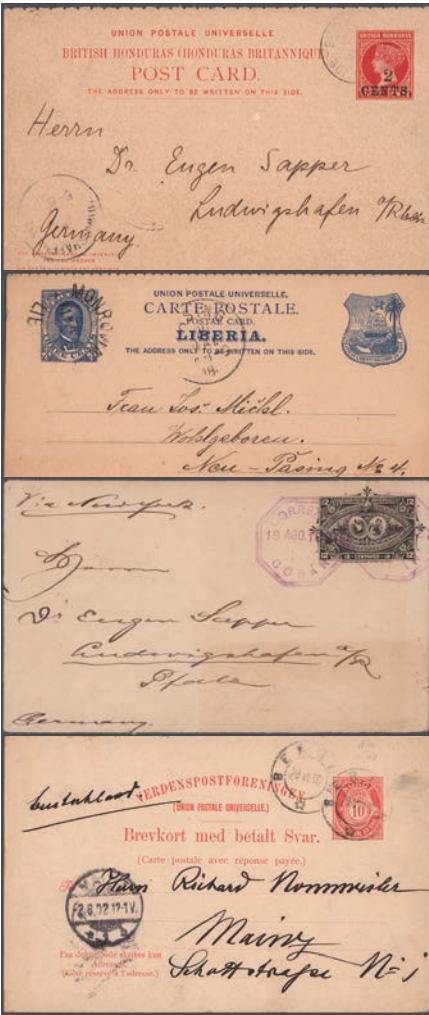 UNION POSTALE UNIVERSELLE
BRITISH HONDURAS (HONDURAS BRITANNIQUE
POST CARD.
THE ADDRESS ONLY TO BE WRITTEN ON THIS SIDE.
BRITISH HONDURAS
2
CENTS.
Herrn
Dr. Eugen Sapper
Ludwigshafen a/Rhein
Germany.
UNION POSTALE UNIVERSELLE.
CARTE POSTALE.
POSTAL CARD.
LIBERIA.
THE ADDRESS ONLY TO BE WRITTEN ON THIS SIDE.
MONROVIA
Frau Jos. Michl.
Wohlgeboren.
Neu-Pasing No 4.
Via New York.
CORREO
18 AGO.
COBÁN
12
12
Herrn
Dr Eugen Sapper
Ludwigshafen a/R
Pfalz
Germany.
Deutschland
VERDENSPOSTFORENINGEN
(UNION POSTALE UNIVERSELLE.)
Brevkort med betalt Svar.
(Carte postale avec réponse payée.)
10
-2.8.02.12-1V.
Herrn Richard Nonnweiler
Mainz
Schottstraße No 1
Paa denne Side skrives kun
Adressen.
(Côté réservé à l'adresse.)